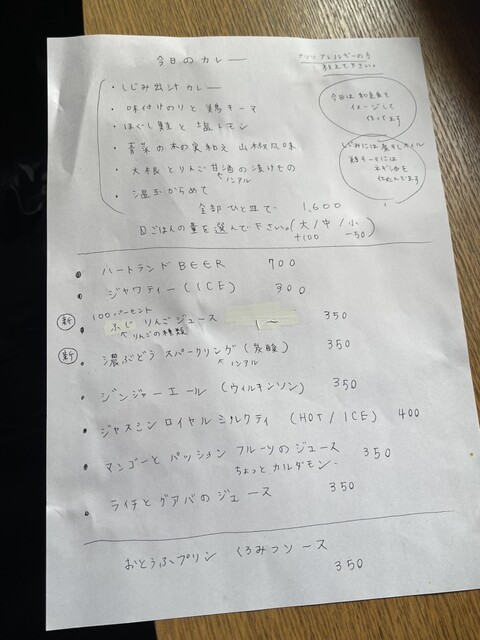 今日のカレー
アサリアレルギーの方
教えて下さい。
・しじみ出汁カレー
・味付けのりと鶏キーマ
・ほぐし鮭と塩レモン
・青菜の木の実和え 山椒風味
・大根とりんご甘酒の漬けもの
↖ノンアル
・温玉からめて
今日は和定食を
イメージして
作ってます
しじみには煮干しオイル
鶏キーマには
ネギ油を
仕込んでます
全部ひと皿で 1,600
ごはんの量を選んで下さい。(大/中/小
+100 -50)
・ハートランドBEER 700
・ジャワティー(ICE) 300
新 100パーセント
・ふじ りんごジュース 350
↖りんごの種類
新
・濃ぶどうスパークリング(炭酸) 350
↖ノンアル
・ジンジャーエール(ウィルキンソン) 350
・ジャスミンロイヤルミルクティ (HOT/ICE) 400
・マンゴーとパッションフルーツのジュース 350
ちょっとカルダモン
・ライチとグアバのジュース 350
おとうふプリン くろみつソース
350